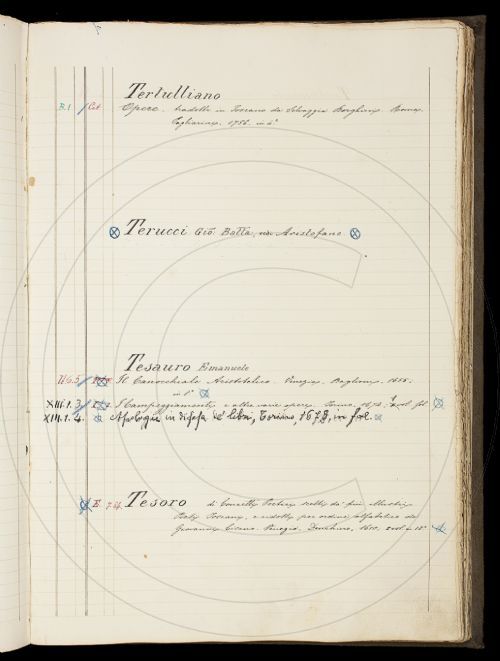 Tertulliano
B.1 Opere. tradotte in Toscano da Selvaggia Borghini. Roma.
Pagliarini. 1756. in 4°
Terucci Gio: Batta, Aristofane
Tesauro Emanuele
II.6.5 Il Canocchiale Aristotelico. Venezia. Baglioni. 1655.
in 8°
XIII.1.3 I Campeggiamenti e altre varie opere. Torino. 1674. vol. fol.
XIII.1.4. Apologie in difesa de' libri, Torino, 1673, in fol.
E. Tesoro di Concetti Poetici scelti da' più illustri
Poeti Toscani, e ridotti per ordine alfabetico da
Giovanni Cisano. Venezia. Deuchino, 1610. vol. 2 12°